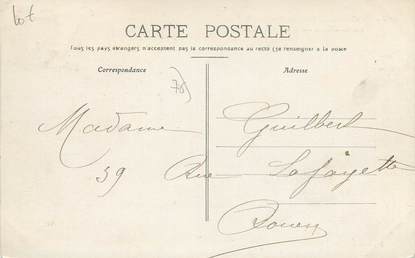 Lot
CARTE POSTALE
Tous les pays étrangers n'acceptent pas la correspondance au recto (se renseigner à la poste
Correspondance
Adresse
78)
Madame Guilbert
39 Rue Lafayette
Rouen